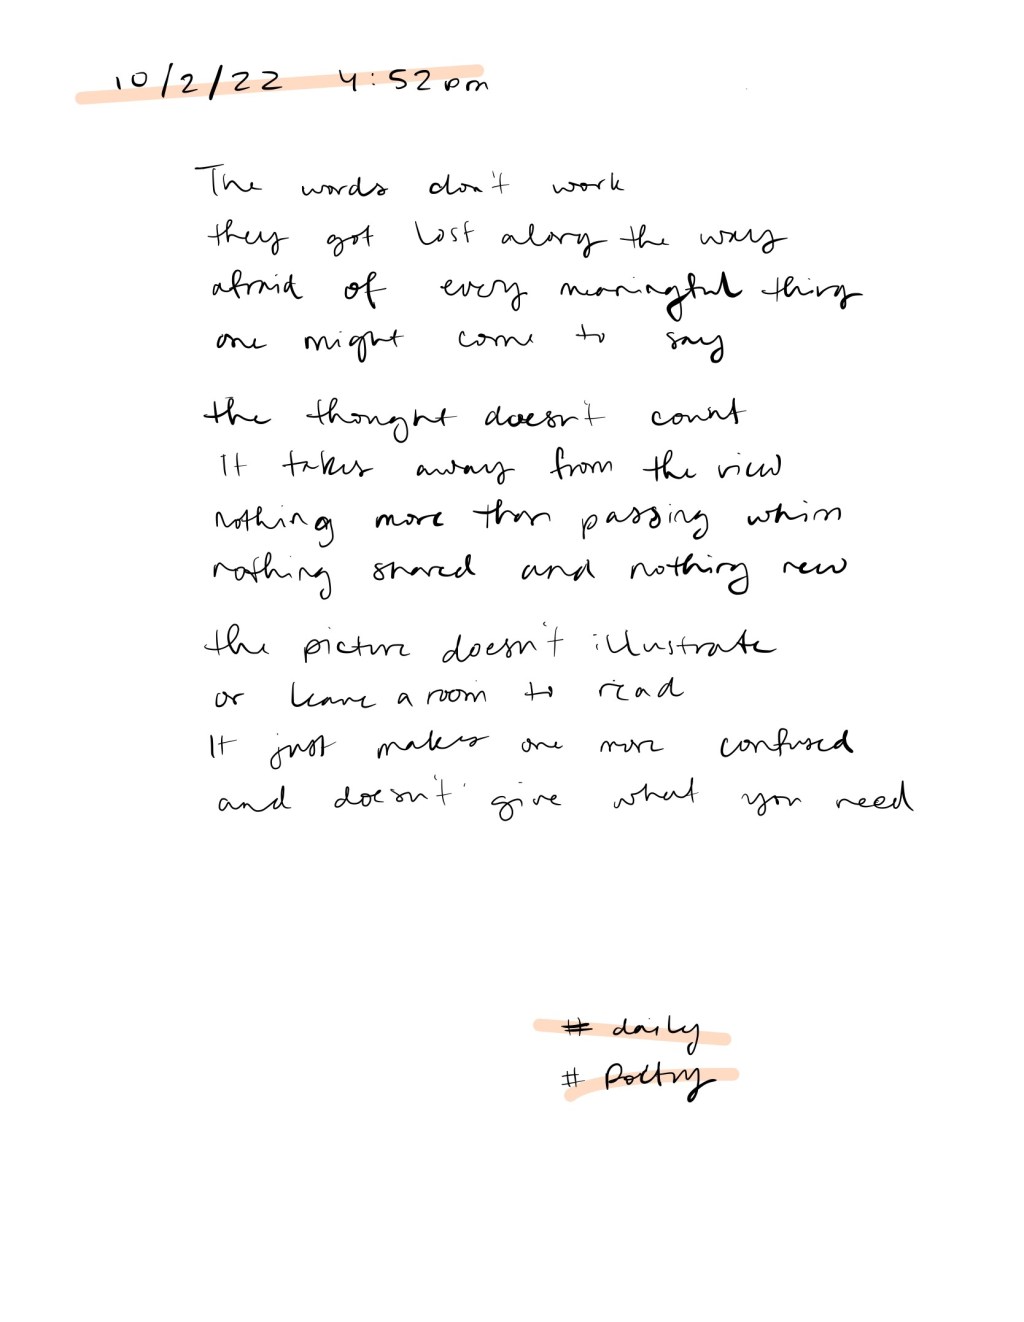 10/2/22 4:52 pm
The words don't work
they got lost along the way
afraid of every meaningful thing
one might come to say
the thought doesn't count
It takes away from the view
nothing more than passing whim
nothing shared and nothing new
the picture doesn't illustrate
or leave a room to read
It just makes one more confused
and doesn't give what you need
# daily
# Poetry